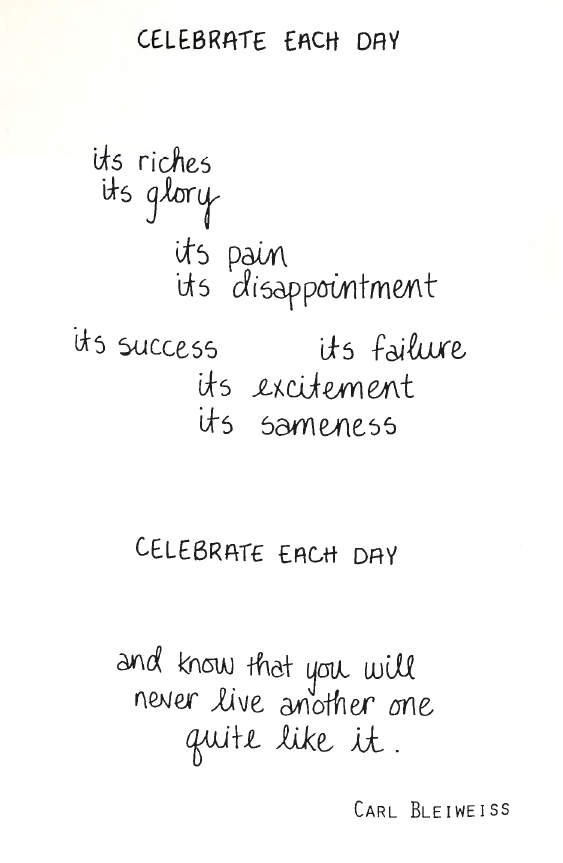 CELEBRATE EACH DAY
its riches
its glory
its pain
its disappointment
its success its failure
its excitement
its sameness
CELEBRATE EACH DAY
and know that you will
never live another one
quite like it.
CARL BLEIWEISS